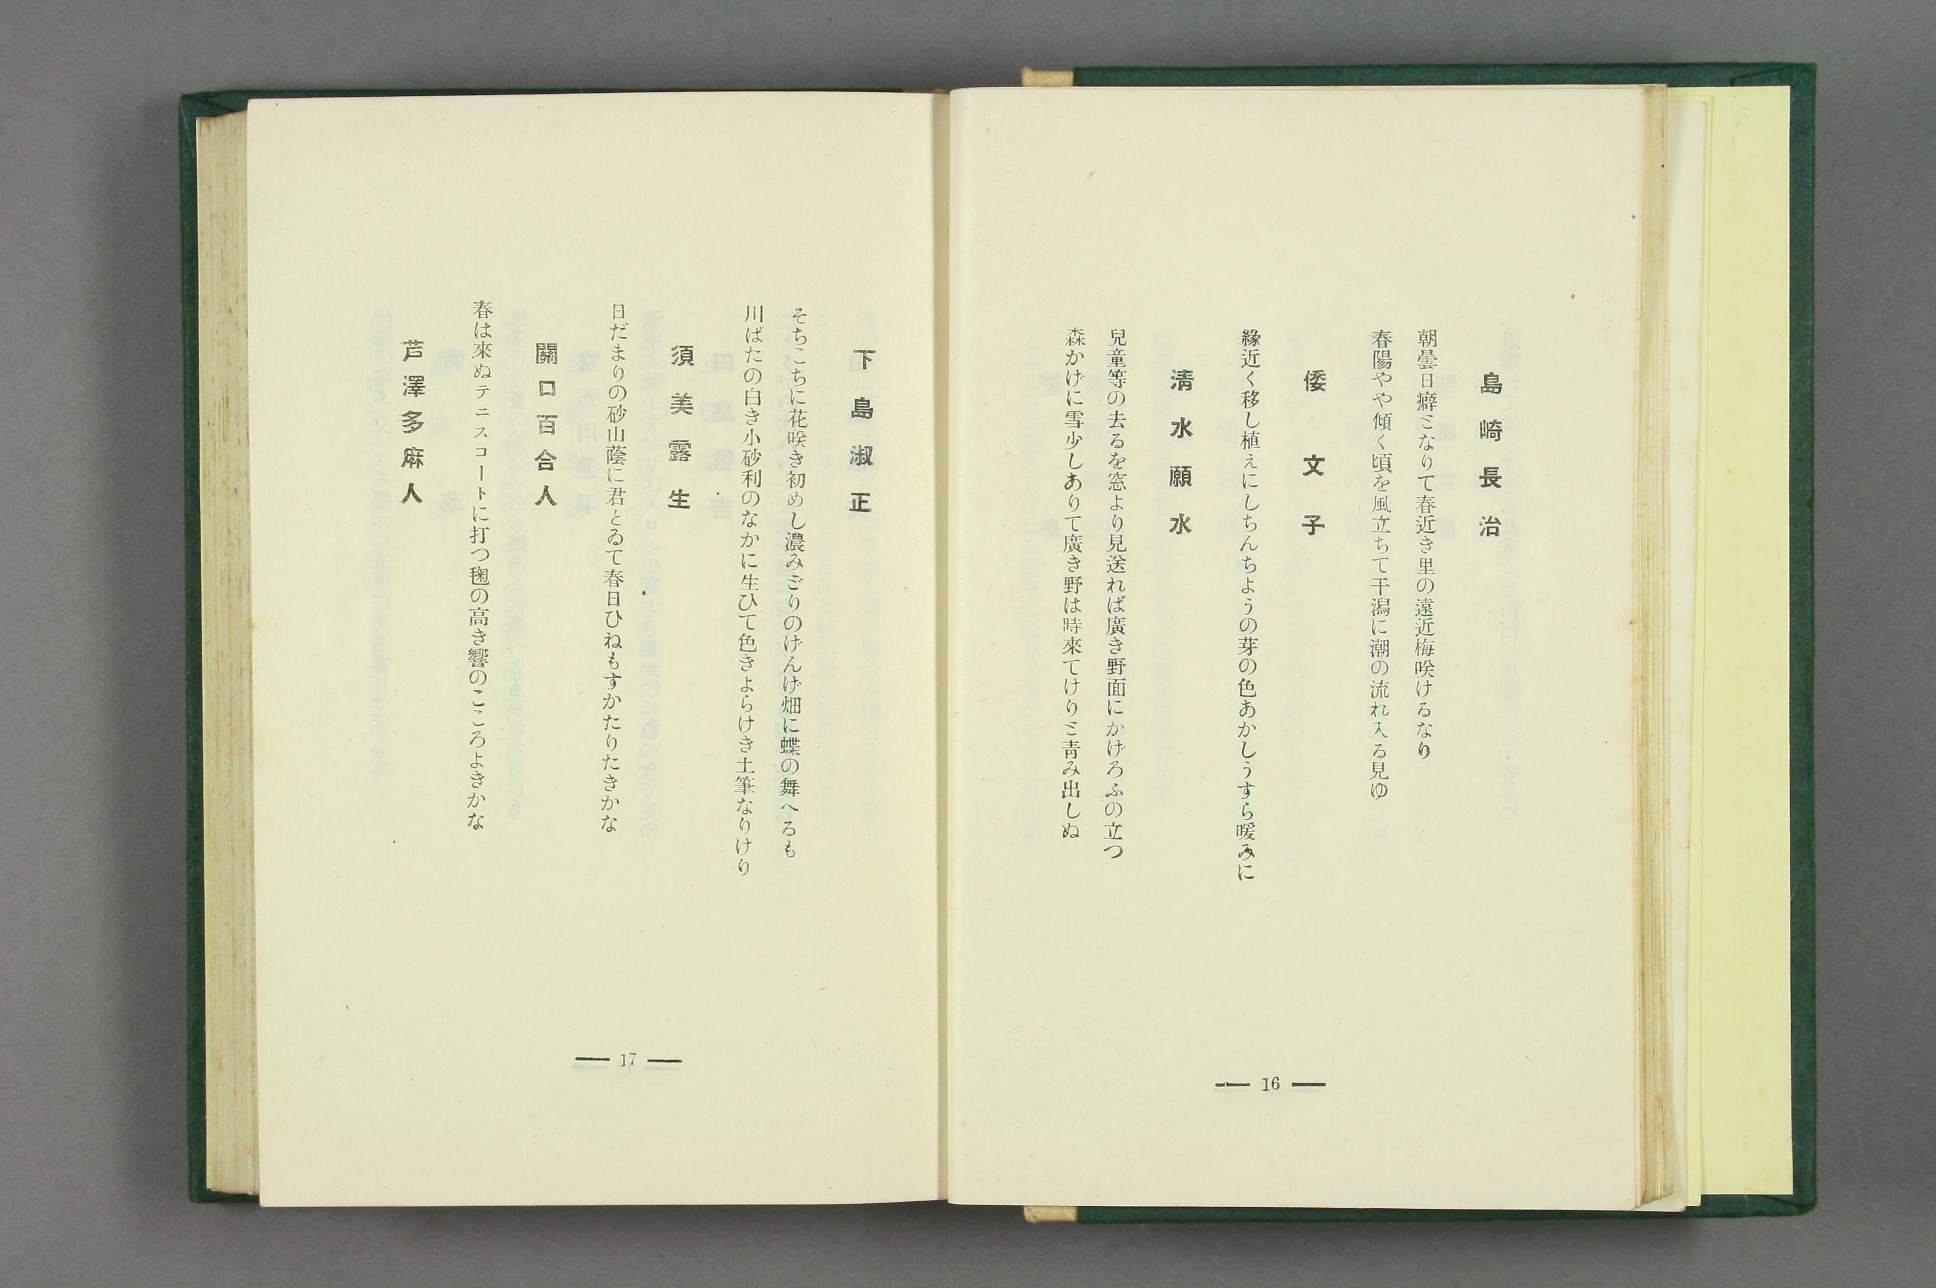 島崎長治
朝曇日癖ミなりて春近き里の遠近梅咲けるなり
春陽やや傾く頃を風立ちて干潟に潮の流れ入る見ゆ
倭文子
縁近く移し植ゑにしちんちようの芽の色あかしうすら暖みに
清水願水
兒童等の去るを窓より見送れば廣き野面にかげろふの立つ
森かげに雪少しありて廣き野は時來てけりミ青み出しぬ
16
下島淑正
そちこちに花咲き初めし濃みどりのげんげ畑に蝶の舞へるも
川ばたの白き小砂利のなかに生ひて色きよらけき土筆なりけり
須美露生
日だまりの砂山蔭に君とゐて春日ひねもすかたりたきかな
關口百合人
春は來ぬテニスコートに打つ毱の高き響のこころよきかな
芦澤多麻人
17